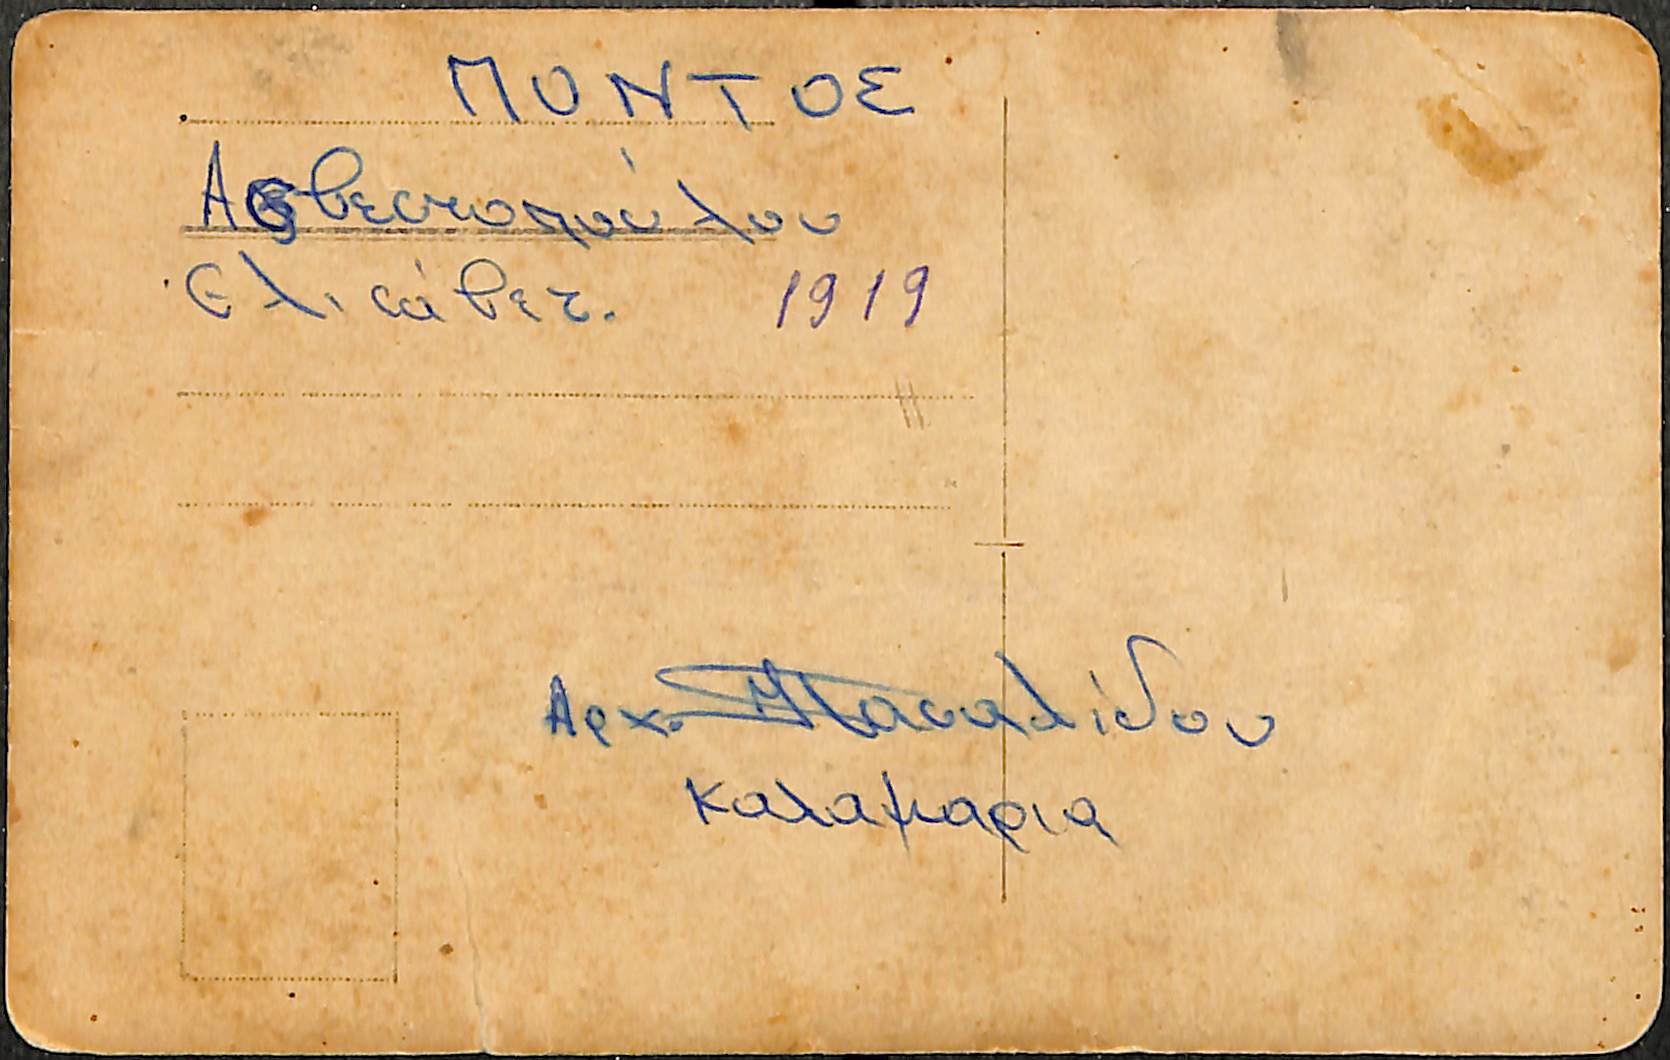 ΠΟΝΤΟΣ
Ασβεστοπούλου
Ελισάβετ. 1919
Αρχ. Πασαλίδου
Καλαμαρια